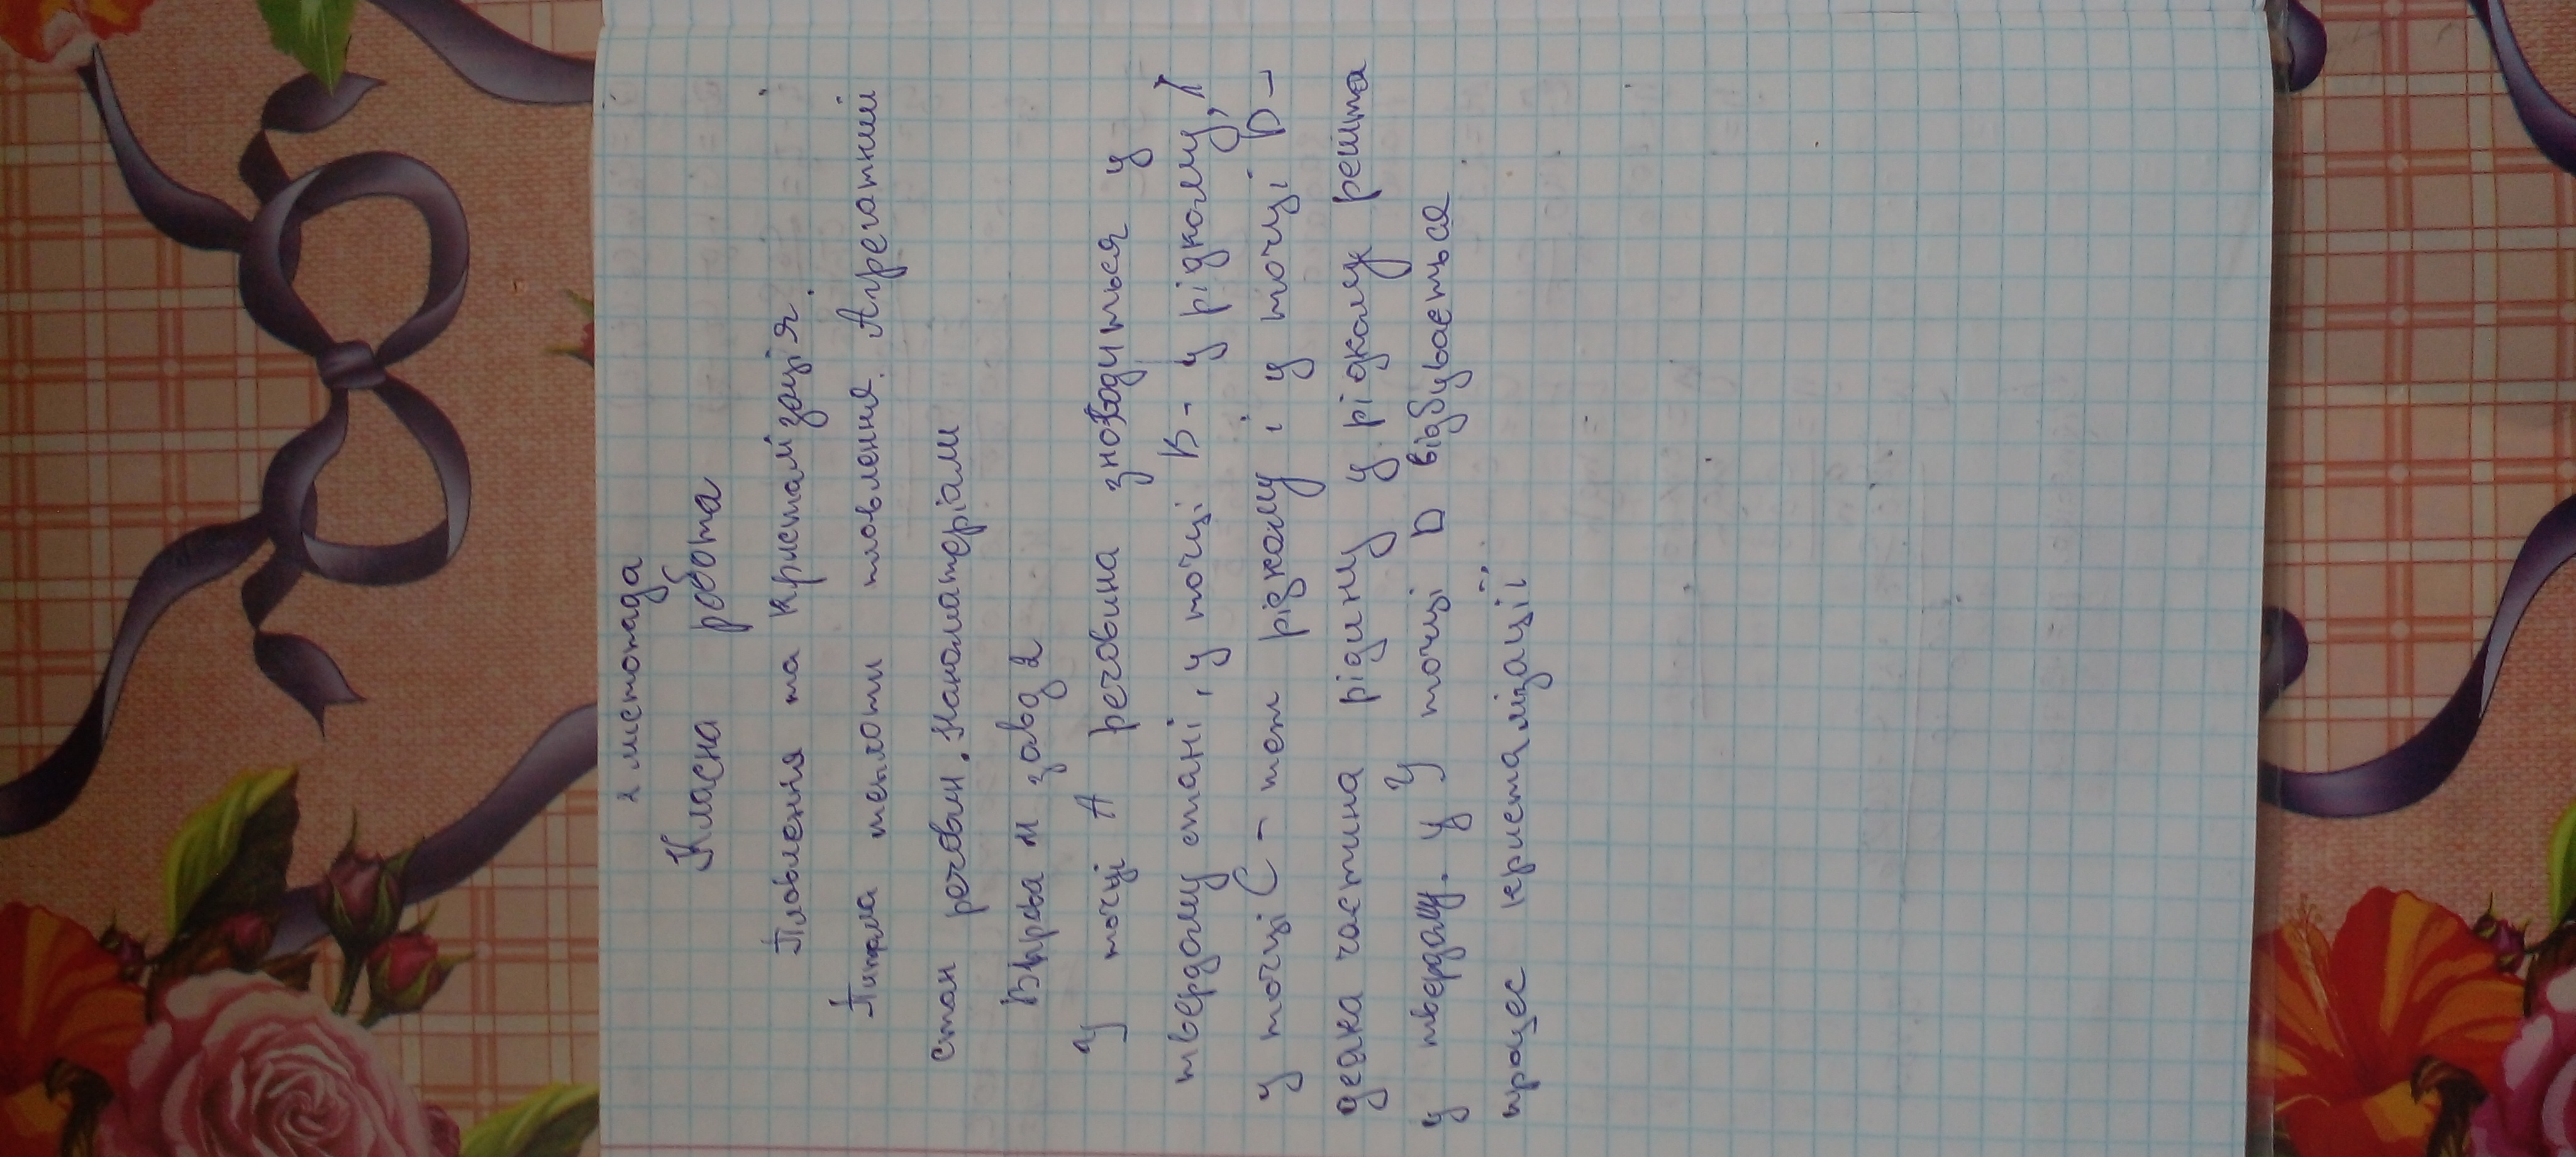 2 листопада
Класна робота
Плавлення та кристалізація.
Питома теплоти плавлення. Агрегатний
стан речовин. Наноматеріали
Вправа н завд 2
У точці А речовина знаходиться у
твердому стані, у точці В - у рідкому,
у точці С - теж рідкому і у точці D -
деяка частина рідину у рідкому решта
у твердому. у У точці D відбувається
процес кристалізації